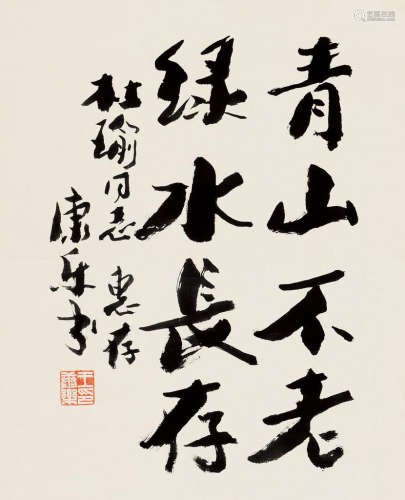 青山不老
绿水長存
杜瑜同志惠存
康乐书